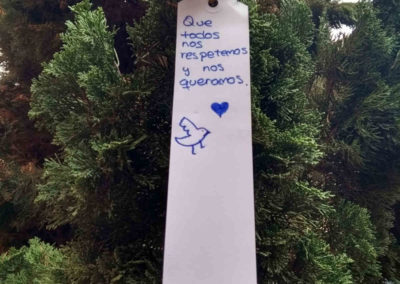 Que
todos
nos
respetemos
y nos
queramos.